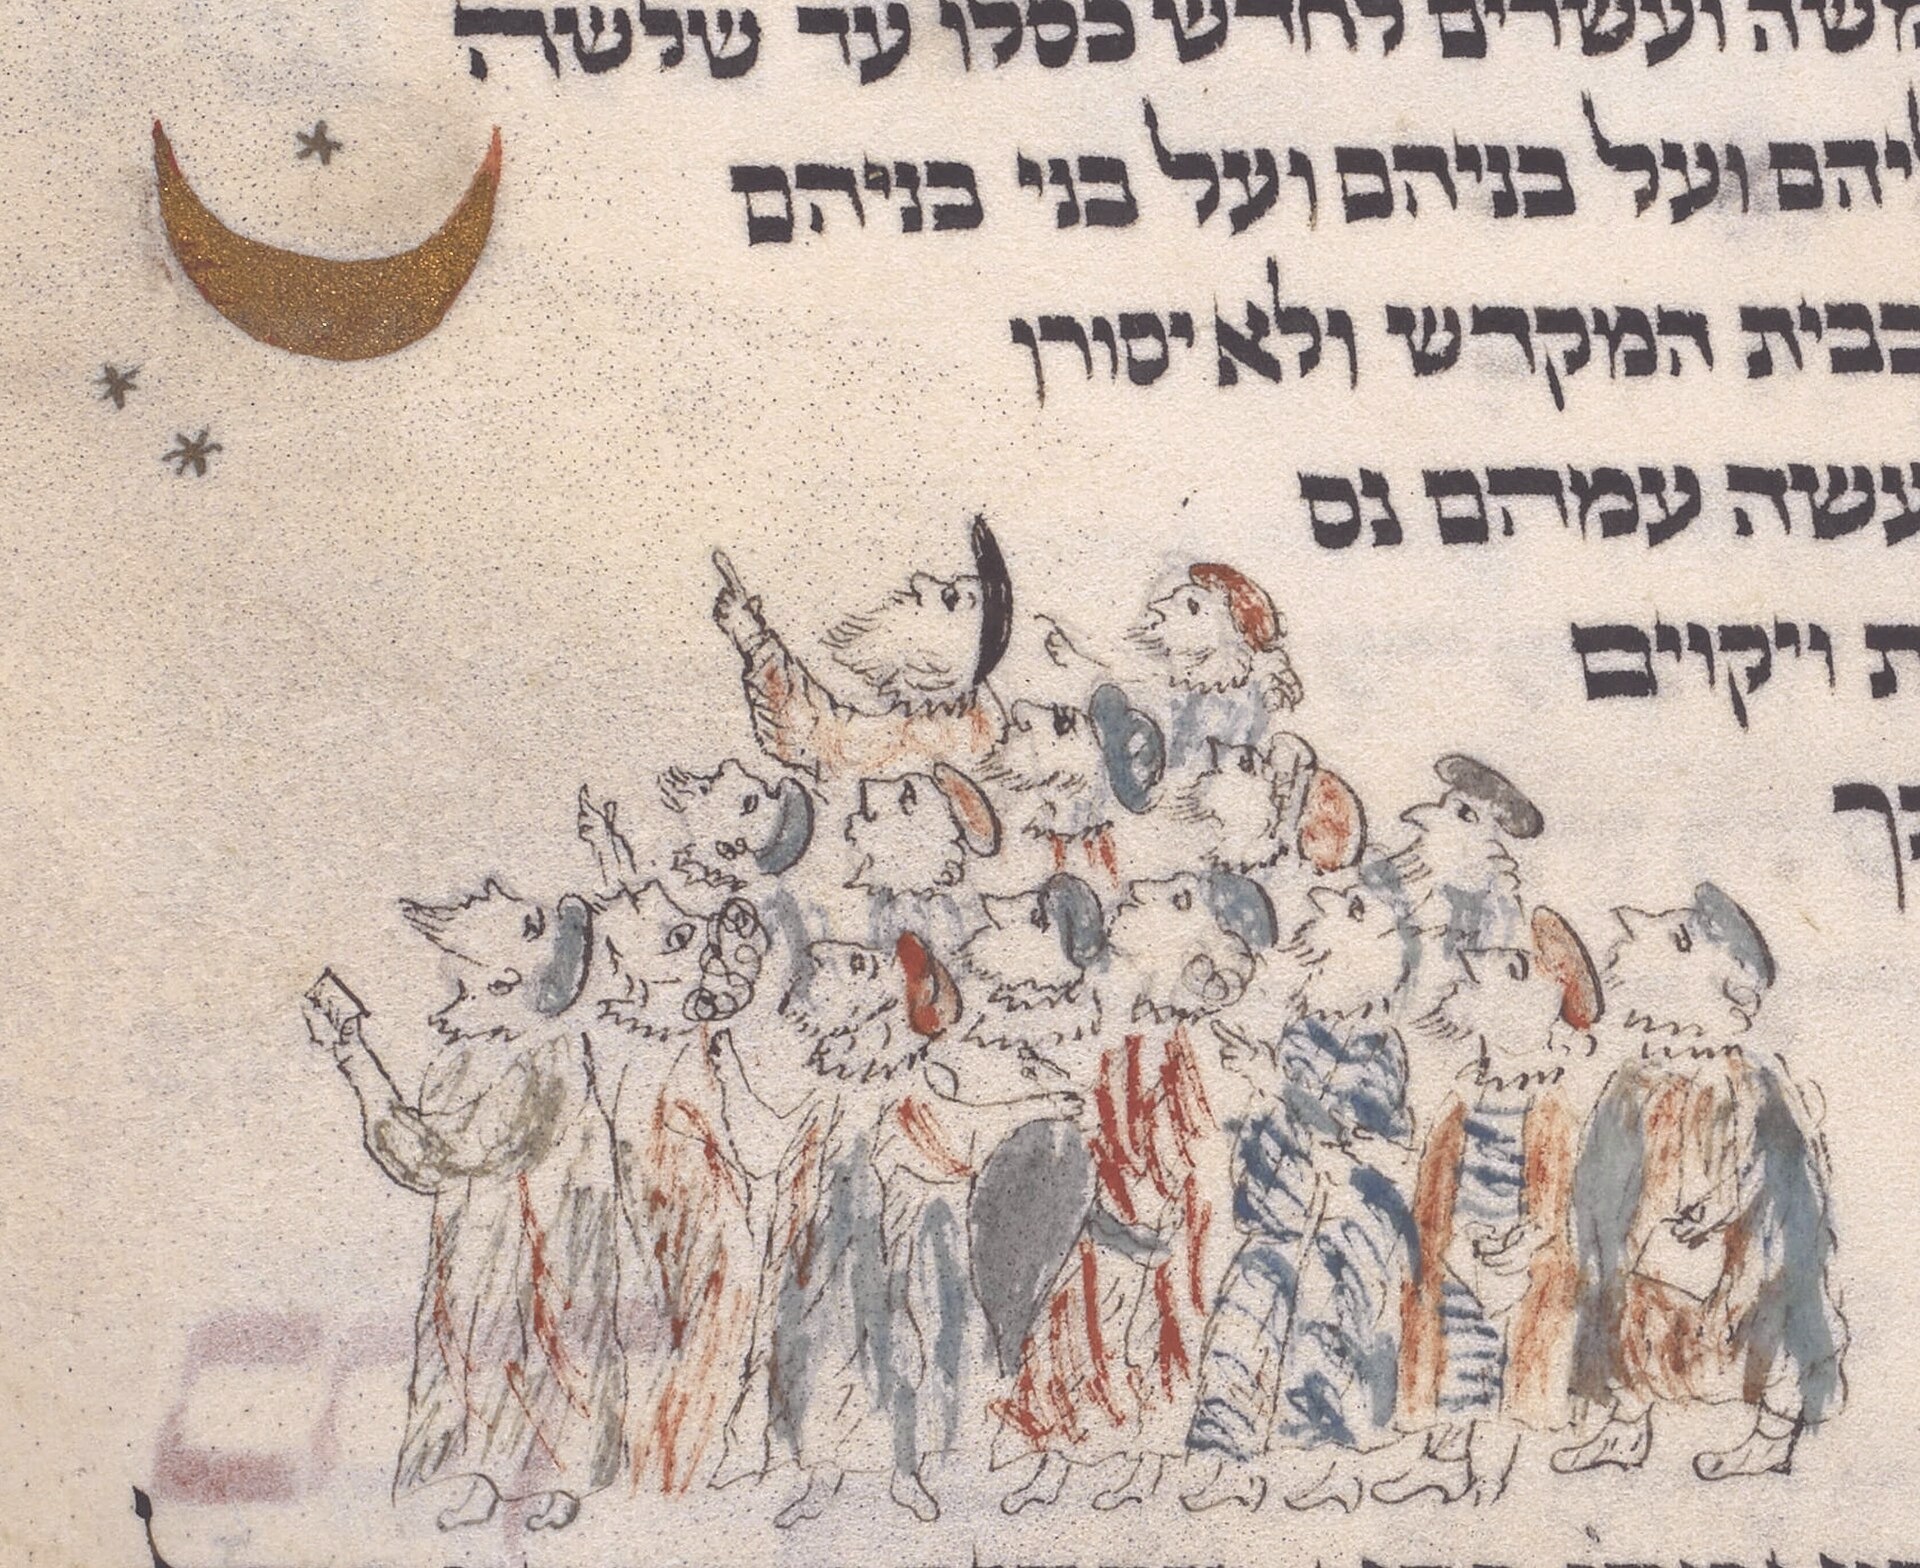 ועשרים לחדש כסלו עד שלשה
ועל בניהם ועל בני בניהם
בבית המקדש ולא יסורון
עשה עמהם נס
ויקוים